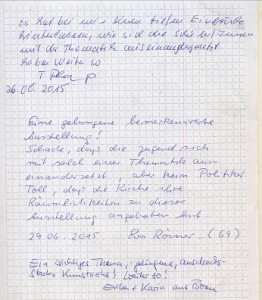 Es hat bei mir einen tiefen Eindruck
hinterlassen, wie sich die Schüler/Innen
mit der Thematik auseinandergesetzt
haben. Weiter so
26.06.2015
Eine gelungene bemerkenswerte
Ausstellung!
Schade, dass die Jugend sich
mit solch einer Thematik aus-
einandersetzt, aber kein Politiker.
Toll, dass die Kirche ihre
Räumlichkeiten zu dieser
Ausstellung angeboten hat
29.06.2015 Eva Römer (69)
Ein wichtiges Thema, gelungene, ausdrucks-
starke Kunstwerke! Weiter so!
Karin aus Bonn